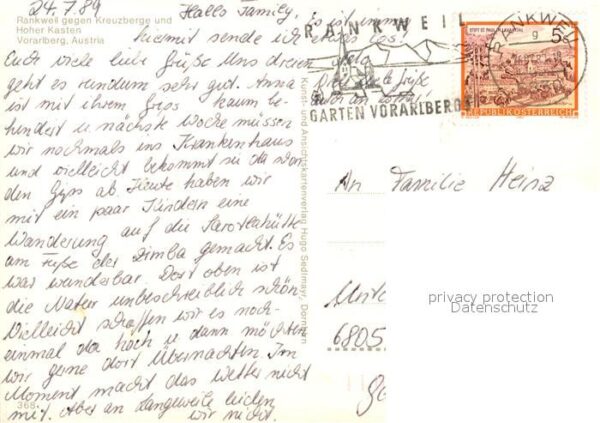 24.7.89
Rankweil gegen Kreuzberge und
Hoher Kasten
Vorarlberg, Austria
Hallo Family,
hiermit sende ich
Euch viele liebe Grüße Uns dreien
geht es rundum sehr gut. Anna
ist mit ihrem Gips kaum be-
hindert u nächste Woche müssen
wir nochmals ins Krankenhaus
und vielleicht bekommt sie da schon
den Gips ab Heute haben wir
mit ein paar Kindern eine
Wanderung auf die Sarotlahütte
am Fuße der Zimba gemacht. Es
war wunderbar. Dort oben ist
die Natur unbeschreiblich schön
Vielleicht schaffen wir es noch-
einmal da hoch u dann möchten
wir gerne dort übernachten Im
Moment macht das Wetter nicht
mit. Aber an Langeweile leiden
wir nicht.
368
es ist immer
etwas los!
Kunst- und Ansichtskartenverlag Hugo Sedlmayr, Dornbirn
RANKWEIL
GARTEN VORARLBERGS
RANKWEIL
STIFT ST. PAUL
5
REPUBLIK ÖSTERREICH
An Familie Heinz
6805
privacy protection
Datenschutz